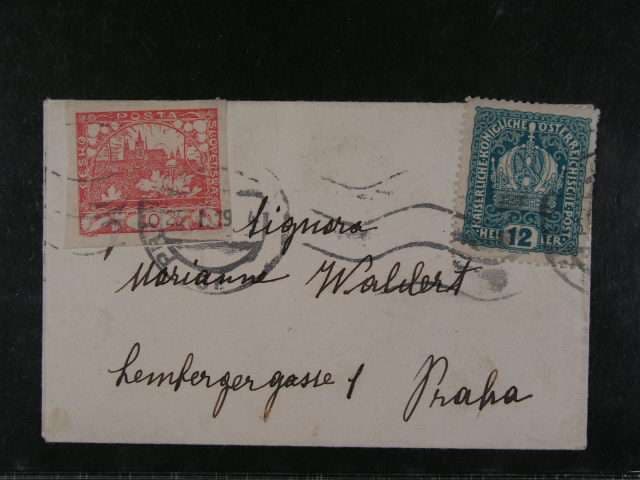 POSTA
ČESKO
SLOVENSKÁ
KAISERLICHE KÖNIGLICHE ÖSTERREICHISCHE POST
12
HELLER
Signora
Marianne Waldert
Lembergergasse 1
Praha